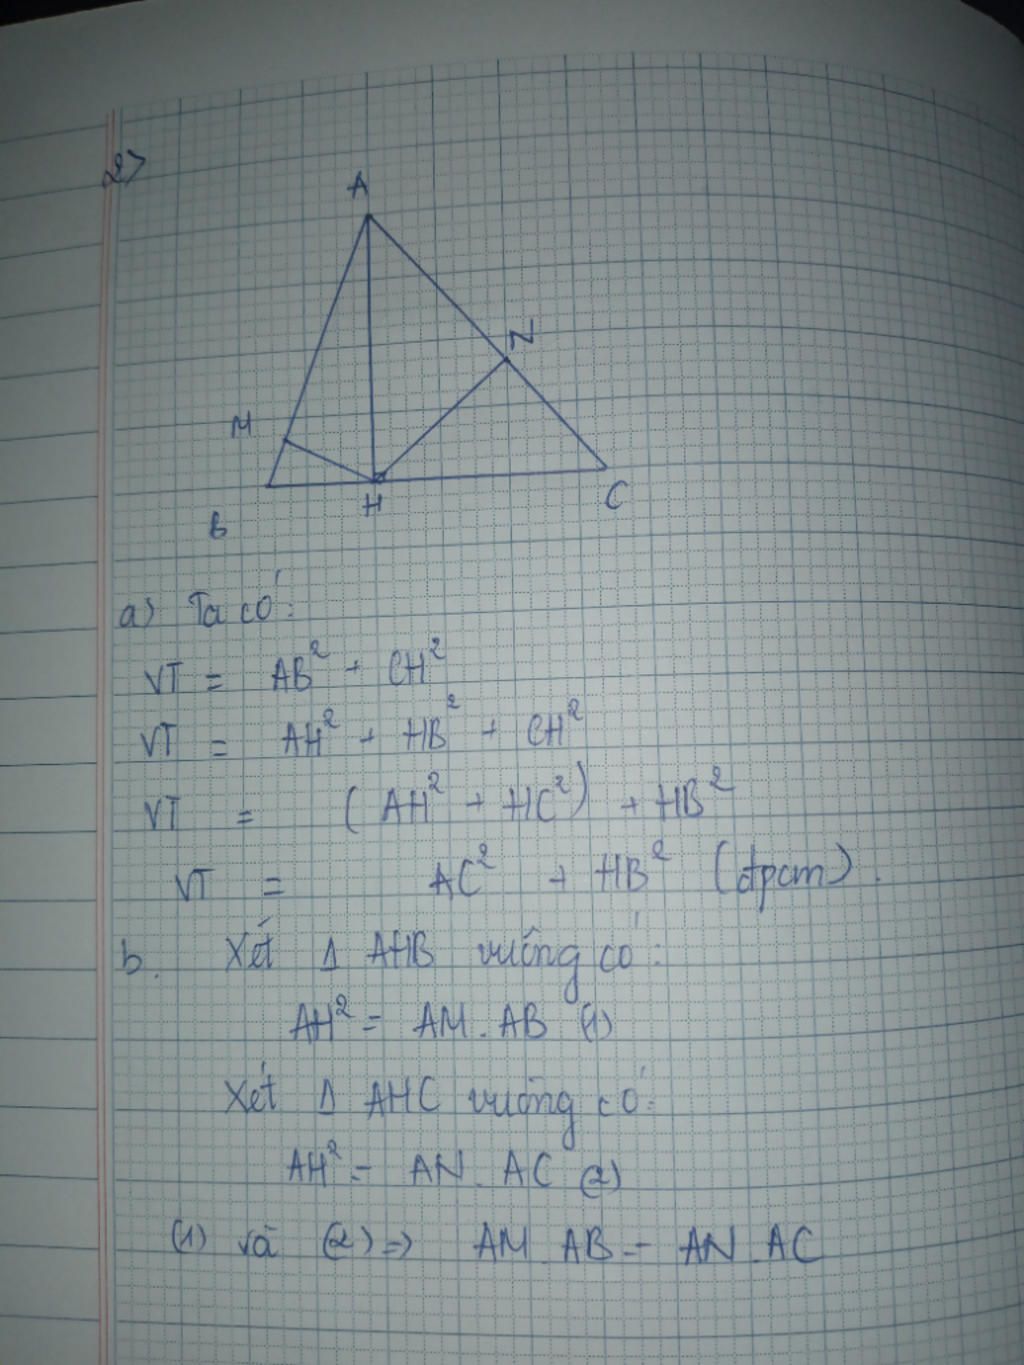 2)
A
N
M
H
C
B
a) Ta có:
VT = AB² + CH²
VT = AH² + HB² + CH²
VT = (AH² + HC²) + HB²
VT = AC² + HB² (đpcm).
b. Xét Δ AHB vuông có:
AH² = AM . AB (1)
Xét Δ AHC vuông có:
AH² = AN . AC (2)
(1) và (2) => AM . AB = AN . AC